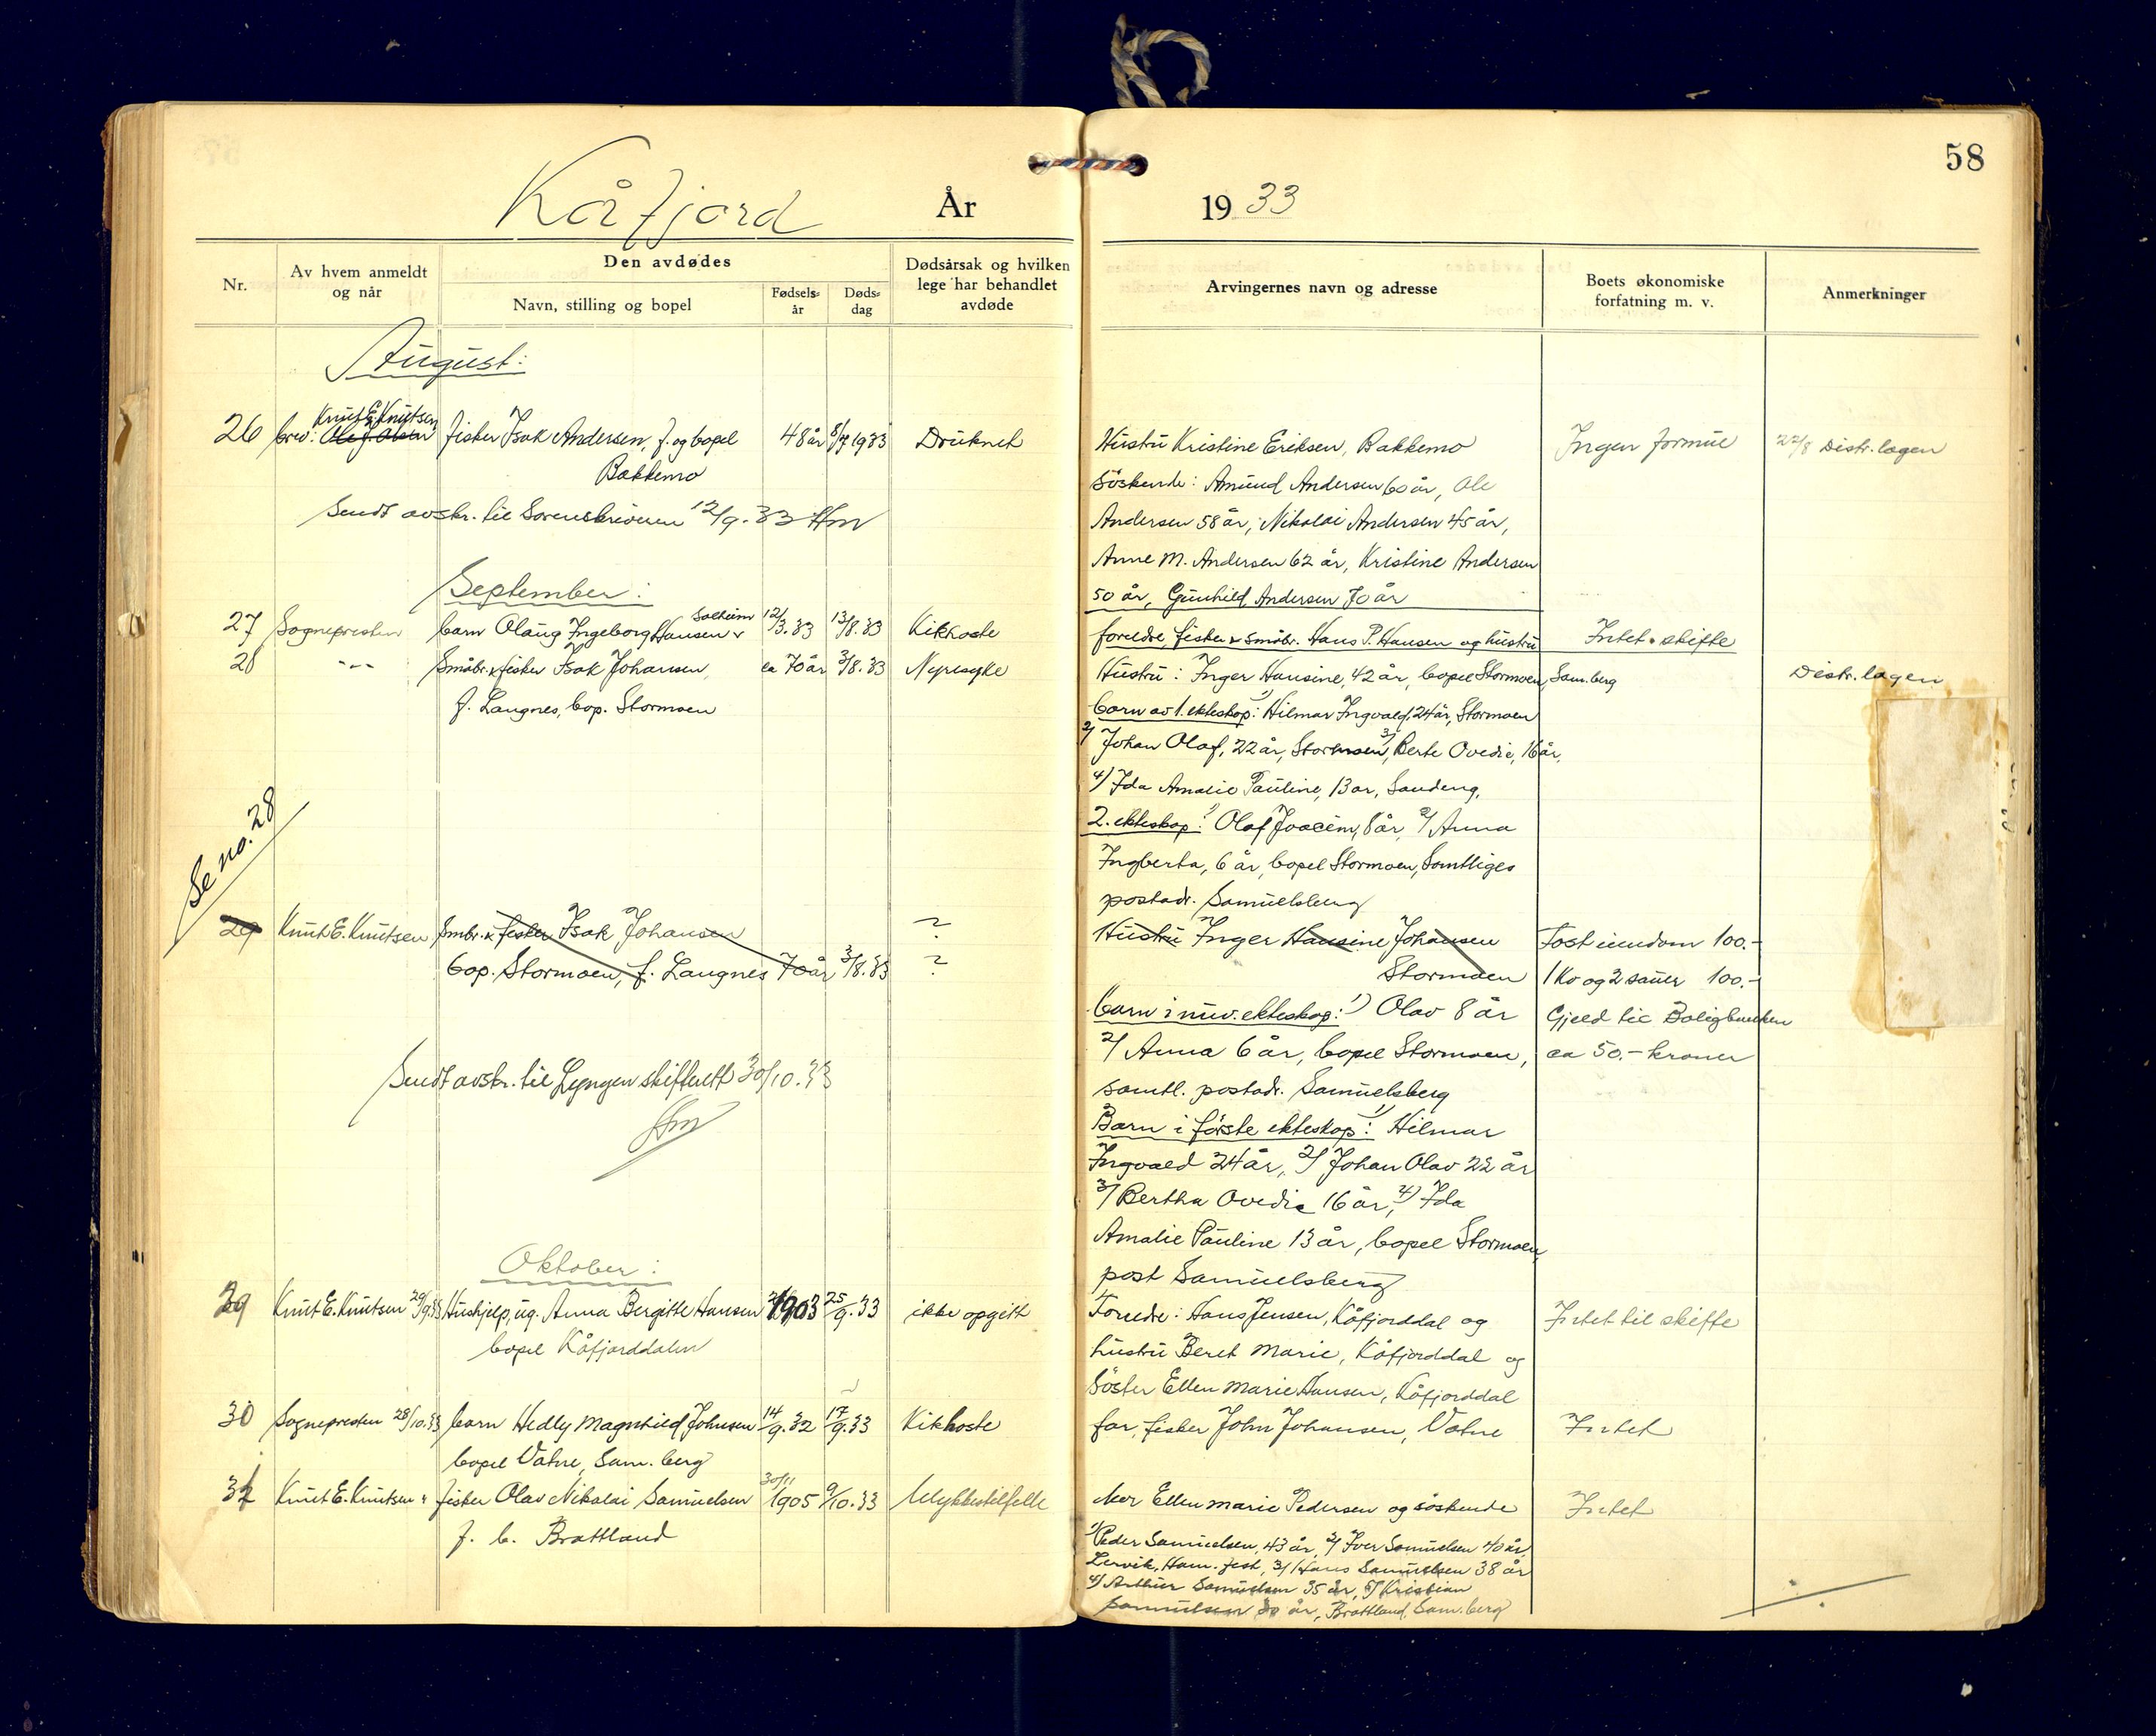 58
Kåfjord År 1933
Nr.
Av hvem anmeldt
og når
Den avdødes
Navn, stilling og bopel
Fødsels-
år
Døds-
dag
Dødsårsak og hvilken
lege har behandlet
avdøde
Arvingernes navn og adresse
Boets økonomiske
forfatning m. v.
Anmerkninger
August:
Knut E. Knutsen
26 brev: fisker Isak Andersen, f. og bopel 48 år 8/7 1933 Druknet
Bakkemo
Sendt avskr. til Sorenskriveren 12/9.33 Hm
Hustru Kristine Eriksen, Bakkemo Ingen formue 22/8 Distr. lagen
Söskende: Amund Andersen 60 år, Ole
Andersen 58 år, Nikolai Andersen 45 år,
Anne M. Andersen 62 år, Kristine Andersen
50 år, Gunhild Andersen 70 år
September:
27 Sognepresten barn Olaug Ingeborg Hansen Solheim 12/3.33 13/8.33 Kikhoste
foreldre, fisker & småbr. Hans P. Hansen og hustru Intet å skifte
28 -"- Småbr. & fisker Isak Johansen, ca 70 år 3/8.33 Nyresyke
f. Langnes, bop. Stormoen
Hustru: Inger Hansine, 42 år, bopel Stormoen, Sam.berg Distr. lagen
barn av 1. ekteskap: 1) Hilmar Ingvald, 24 år, Stormoen
2) Johan Olaf, 22 år, Stormoen, 3) Berte Ovedie, 16 år,
4) Ida Amalie Pauline, 13 år, Sandeng,
2. ekteskap: 1) Olaf Joacim, 8 år, 2) Anna
Ingberta, 6 år, bopel Stormoen, Samtliges
postadr. Samuelsberg
Se no. 28
29 Knut E. Knutsen Smbr. & fisker Isak Johansen ?
bop. Stormoen, f. Langnes 70 år 3/8.33 ?
Hustru Inger Hansine Johansen Fast eiendom 100.-
Stormoen 1 Ko og 2 sauer 100.-
barn i nuv. ekteskap: 1) Olav 8 år Gjeld til Boligbanken
2) Anna 6 år, bopel Stormoen, ca 50.- kroner
samtl. postadr. Samuelsberg
Barn i förste ekteskap: 1) Hilmar
Ingvald 24 år, 2) Johan Olav 22 år
3) Bertha Ovedie 16 år, 4) Ida
Amalie Pauline 13 år, bopel Stormoen,
post Samuelsberg
Sendt avskr. til Lyngen skifterett 30/10.33
Hm
Oktober:
29 Knut E. Knutsen 29/9.33 Hushjelp, ug. Anna Bergitte Hansen 1903 25/9.33 ikke opgitt
bopel Kåfjorddalen
Foreldre: Hans Jensen, Kåfjorddal og Intet til skifte
hustru Beret Marie, Kåfjorddal og
Söster Ellen Marie Hansen, Kåfjorddal
30 Sognepresten 28/10.33 barn Hedly Magnhild Johnsen 14/9.32 17/9.33 Kikhoste
bopel Vatne, Sam.berg
far, fisker John Johansen, Vatne Intet
31 Knut E. Knutsen " fisker Olav Nikolai Samuelsen 30/11 1905 9/10.33 Ulykkestilfelle
f. b. Brattland
Mor Ellen Marie Pedersen og söskende Intet
1) Peder Samuelsen, 43 år, 2) Iver Samuelsen 40 år
Lervik, Ham.fest, 3) Hans Samuelsen 38 år
4) Arthur Samuelsen 35 år, 5) Kristian
Samuelsen 30 år, Brattland, Sam.berg